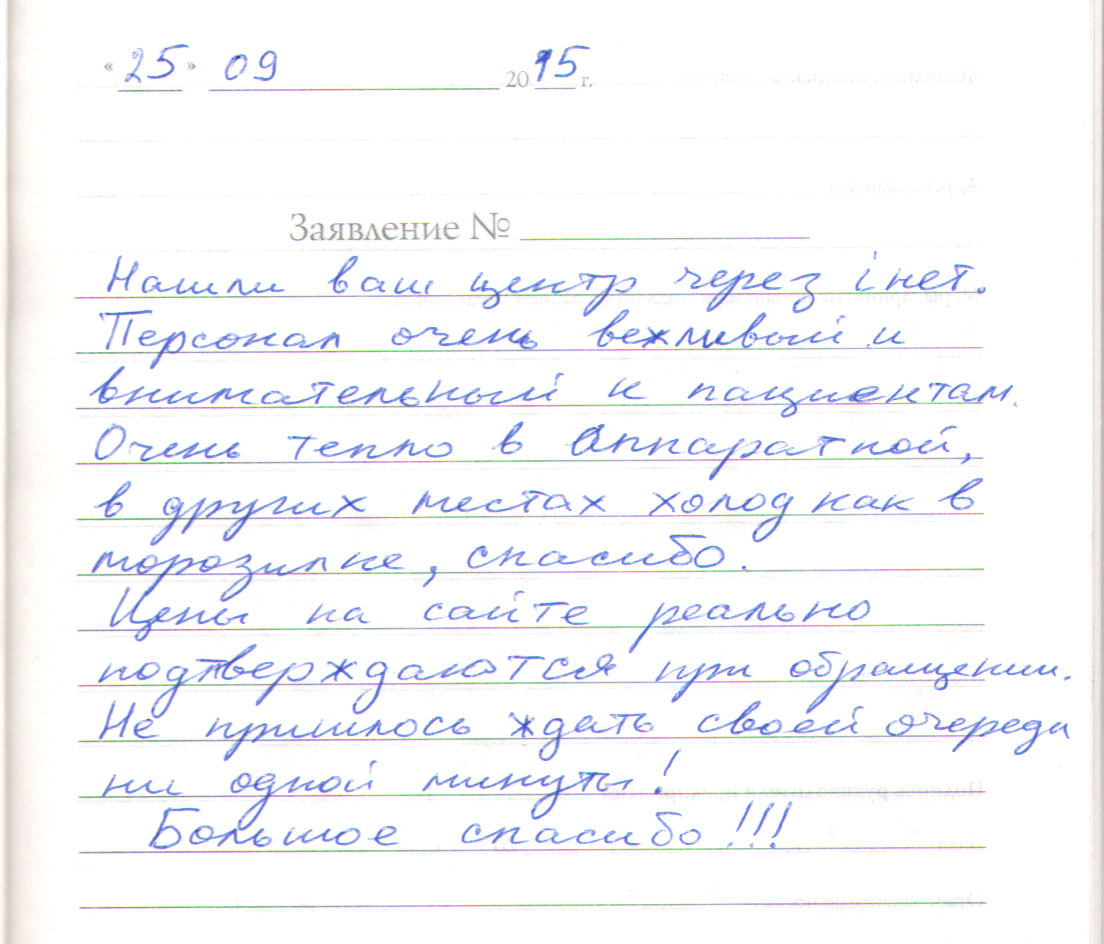 «25» 09 2015 г.
Заявление №
Нашли ваш центр через інет.
Персонал очень вежливый и
внимательный к пациентам.
Очень тепло в аппаратной,
в других местах холод как в
морозилке, спасибо.
Цены на сайте реально
подтверждаются при обращении.
Не пришлось ждать своей очереди
ни одной минуты!
Большое спасибо!!!